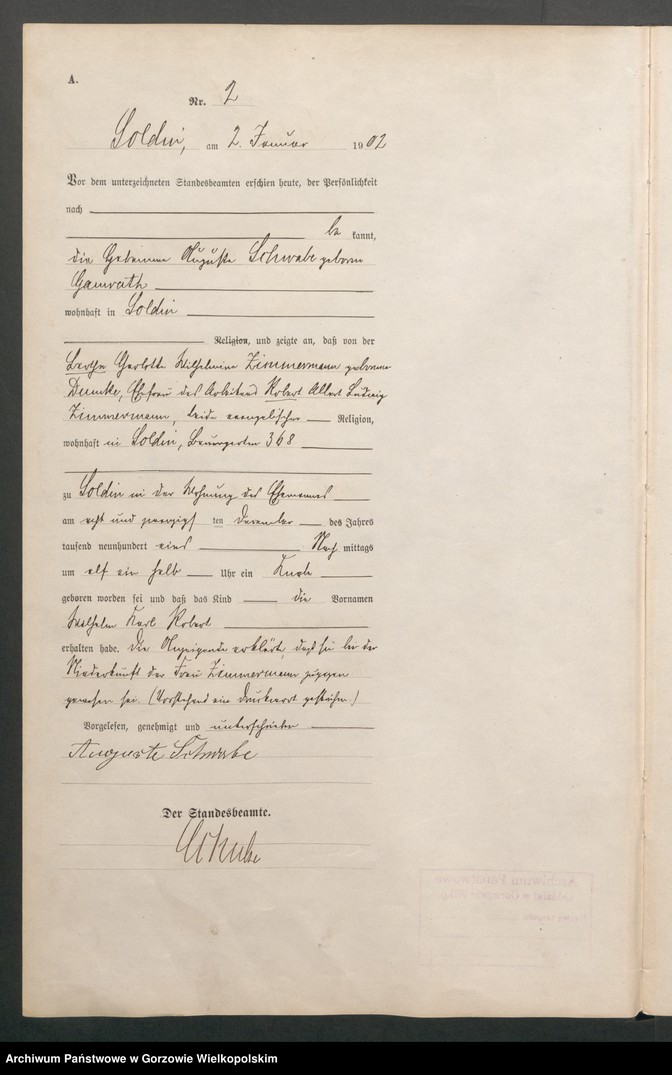 A.
Nr. 2
Soldin, am 2. Januar 1902
Vor dem unterzeichneten Standesbeamten erschien heute, der Persönlichkeit
nach
be kannt,
die Hebamme Auguste Schwabe geborne
Gamrath
wohnhaft in Soldin
Religion, und zeigte an, daß von der
Bertha Charlotte Wilhelmine Zimmermann geborene
Ehefrau des Arbeiters Robert Albert Ludwig
Zimmermann, beide evangelischer Religion,
wohnhaft in Soldin, 368
zu Soldin in der Wohnung des Ehemannes
am acht und zwanzigsten Dezember des Jahres
tausend neunhundert eins Nach mittags
um elf ein halb Uhr ein Knabe
geboren worden sei und daß das Kind die Vornamen
Wilhelm Karl Robert
erhalten habe. Die Anzeigende erklärte, daß sie bei der
Niederkunft der Frau Zimmermann zugegen
gewesen sei. (Vorstehend ein Druckwort gestrichen.)
Vorgelesen, genehmigt und unterschrieben
Auguste Schwabe
Der Standesbeamte.
Archiwum Państwowe
Archiwum Państwowe w Gorzowie Wielkopolskim